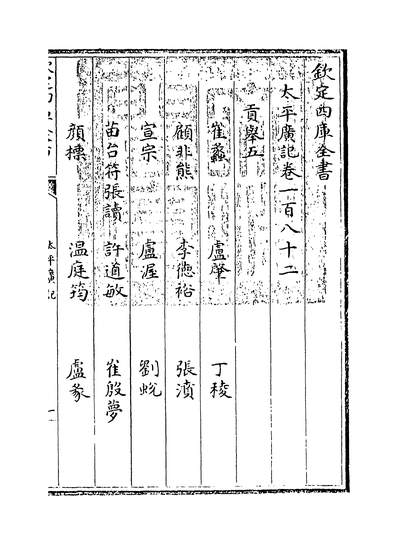 欽定四庫全書
太平廣記卷一百八十二
貢舉五
崔蠡 盧肇 丁稜
顧非熊 李德裕 張濆
宣宗 盧渥 劉蛻
苗台符張讀 許道敏 崔殷夢
顔摽 温庭筠 盧彖
太平廣記